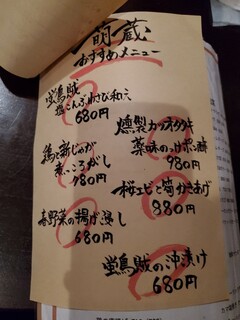 萌蔵
おすすめメニュー
蛍烏賊
塩こんぶわさび和え
680円
燻製カツオタタキ
薬味のっけポン酢
980円
鶏と新じゃが
煮ころがし
780円
桜エビと筍かきあげ
880円
春野菜の揚げ浸し
680円
蛍烏賊の沖漬け
680円